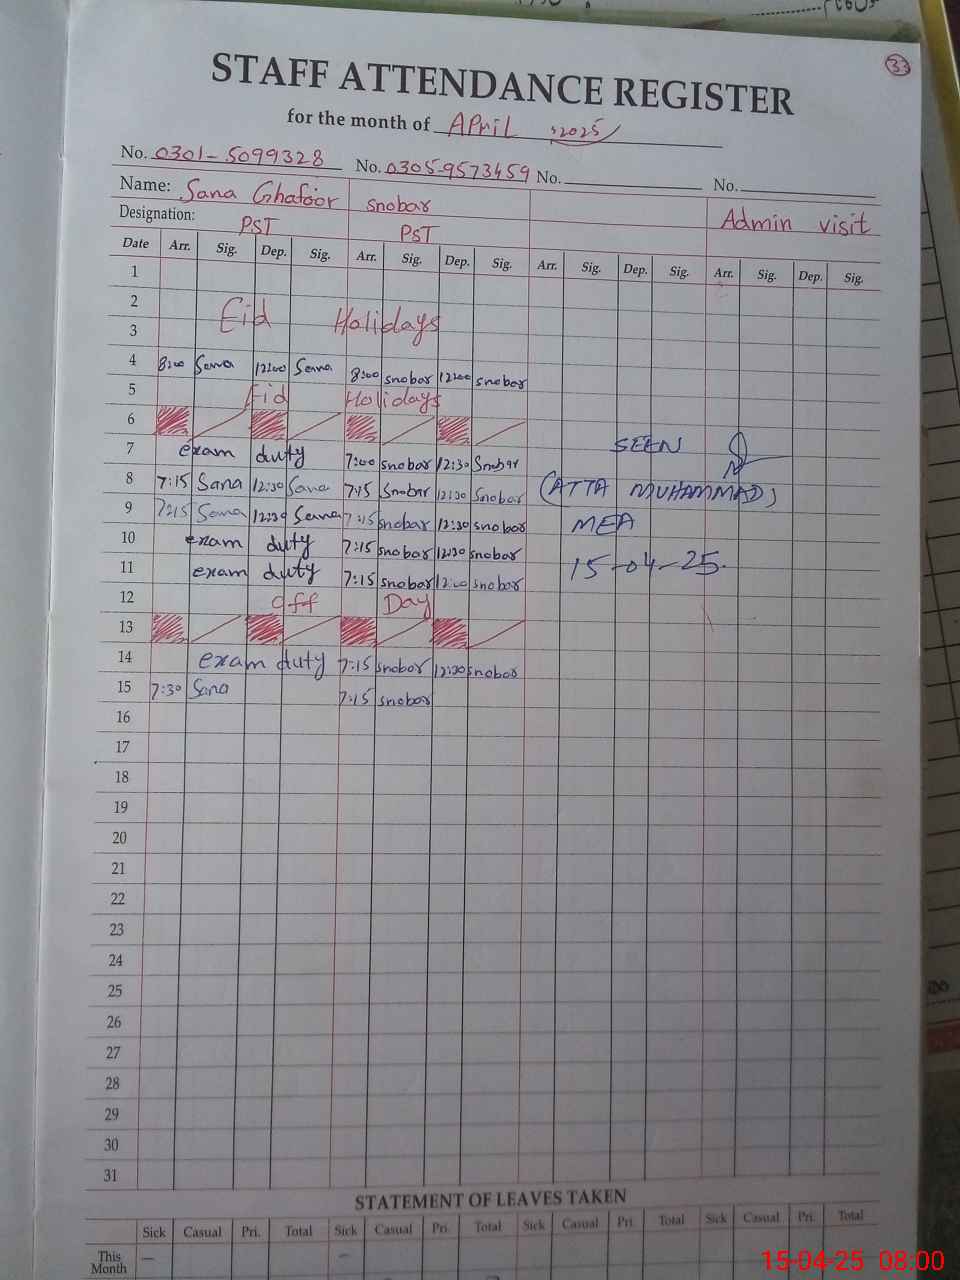 33
STAFF ATTENDANCE REGISTER
for the month of APRIL, 2025
No. 0301-5099328 No. 0305-9573459 No. No.
Name: Sana Ghafoor snobar
Designation: PST PST Admin visit
Date Arr. Sig. Dep. Sig. Arr. Sig. Dep. Sig. Arr. Sig. Dep. Sig. Arr. Sig. Dep. Sig.
1
2 Eid Holidays
3
4 8:00 Sana 12:00 Sana 8:00 snobar 12:00 snobar
5 Eid Holidays
6
7 exam duty 7:00 snobar 12:30 Snobar SEEN
8 7:15 Sana 12:30 Sana 7:15 Snobar 12:30 Snobar (ATTA MUHAMMAD)
9 7:15 Sana 12:30 Sana 7:15 snobar 12:30 snobar MEA
10 exam duty 7:15 snobar 12:30 snobar
11 exam duty 7:15 snobar 12:00 snobar 15-04-25.
12 off Day
13
14 exam duty 7:15 snobar 12:30 snobar
15 7:30 Sana 7:15 snobar
16
17
18
19
20
21
22
23
24
25
26
27
28
29
30
31
STATEMENT OF LEAVES TAKEN
Sick Casual Pri. Total Sick Casual Pri. Total Sick Casual Pri. Total Sick Casual Pri. Total
This Month — —
15-04-25 08:00